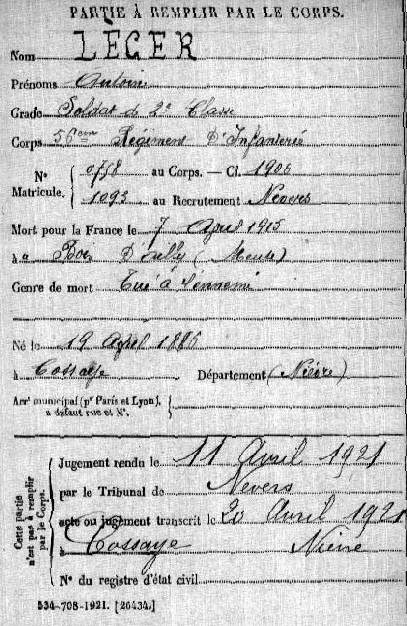 PARTIE À REMPLIR PAR LE CORPS.
Nom LÉGER
Prénoms Antoine
Grade Soldat de 2e Classe
Corps 56eme Régiment D'Infanterie
N° Matricule. 0758 au Corps. — Cl. 1905
1093 au Recrutement Nevers
Mort pour la France le 7 April 1915
à Bois D'ailly (Meuse)
Genre de mort Tué à l'ennemi
Né le 19 April 1885
à Cossaye Département (Nièvre)
Arrt municipal (pr Paris et Lyon),
à défaut rue et N°.
Cette partie n'est pas à remplir par le Corps.
Jugement rendu le 11 Avril 1921
par le Tribunal de Nevers
acte ou jugement transcrit le 20 Avril 1921
à Cossaye Nièvre
N° du registre d'état civil
534-708-1921. [26434.]